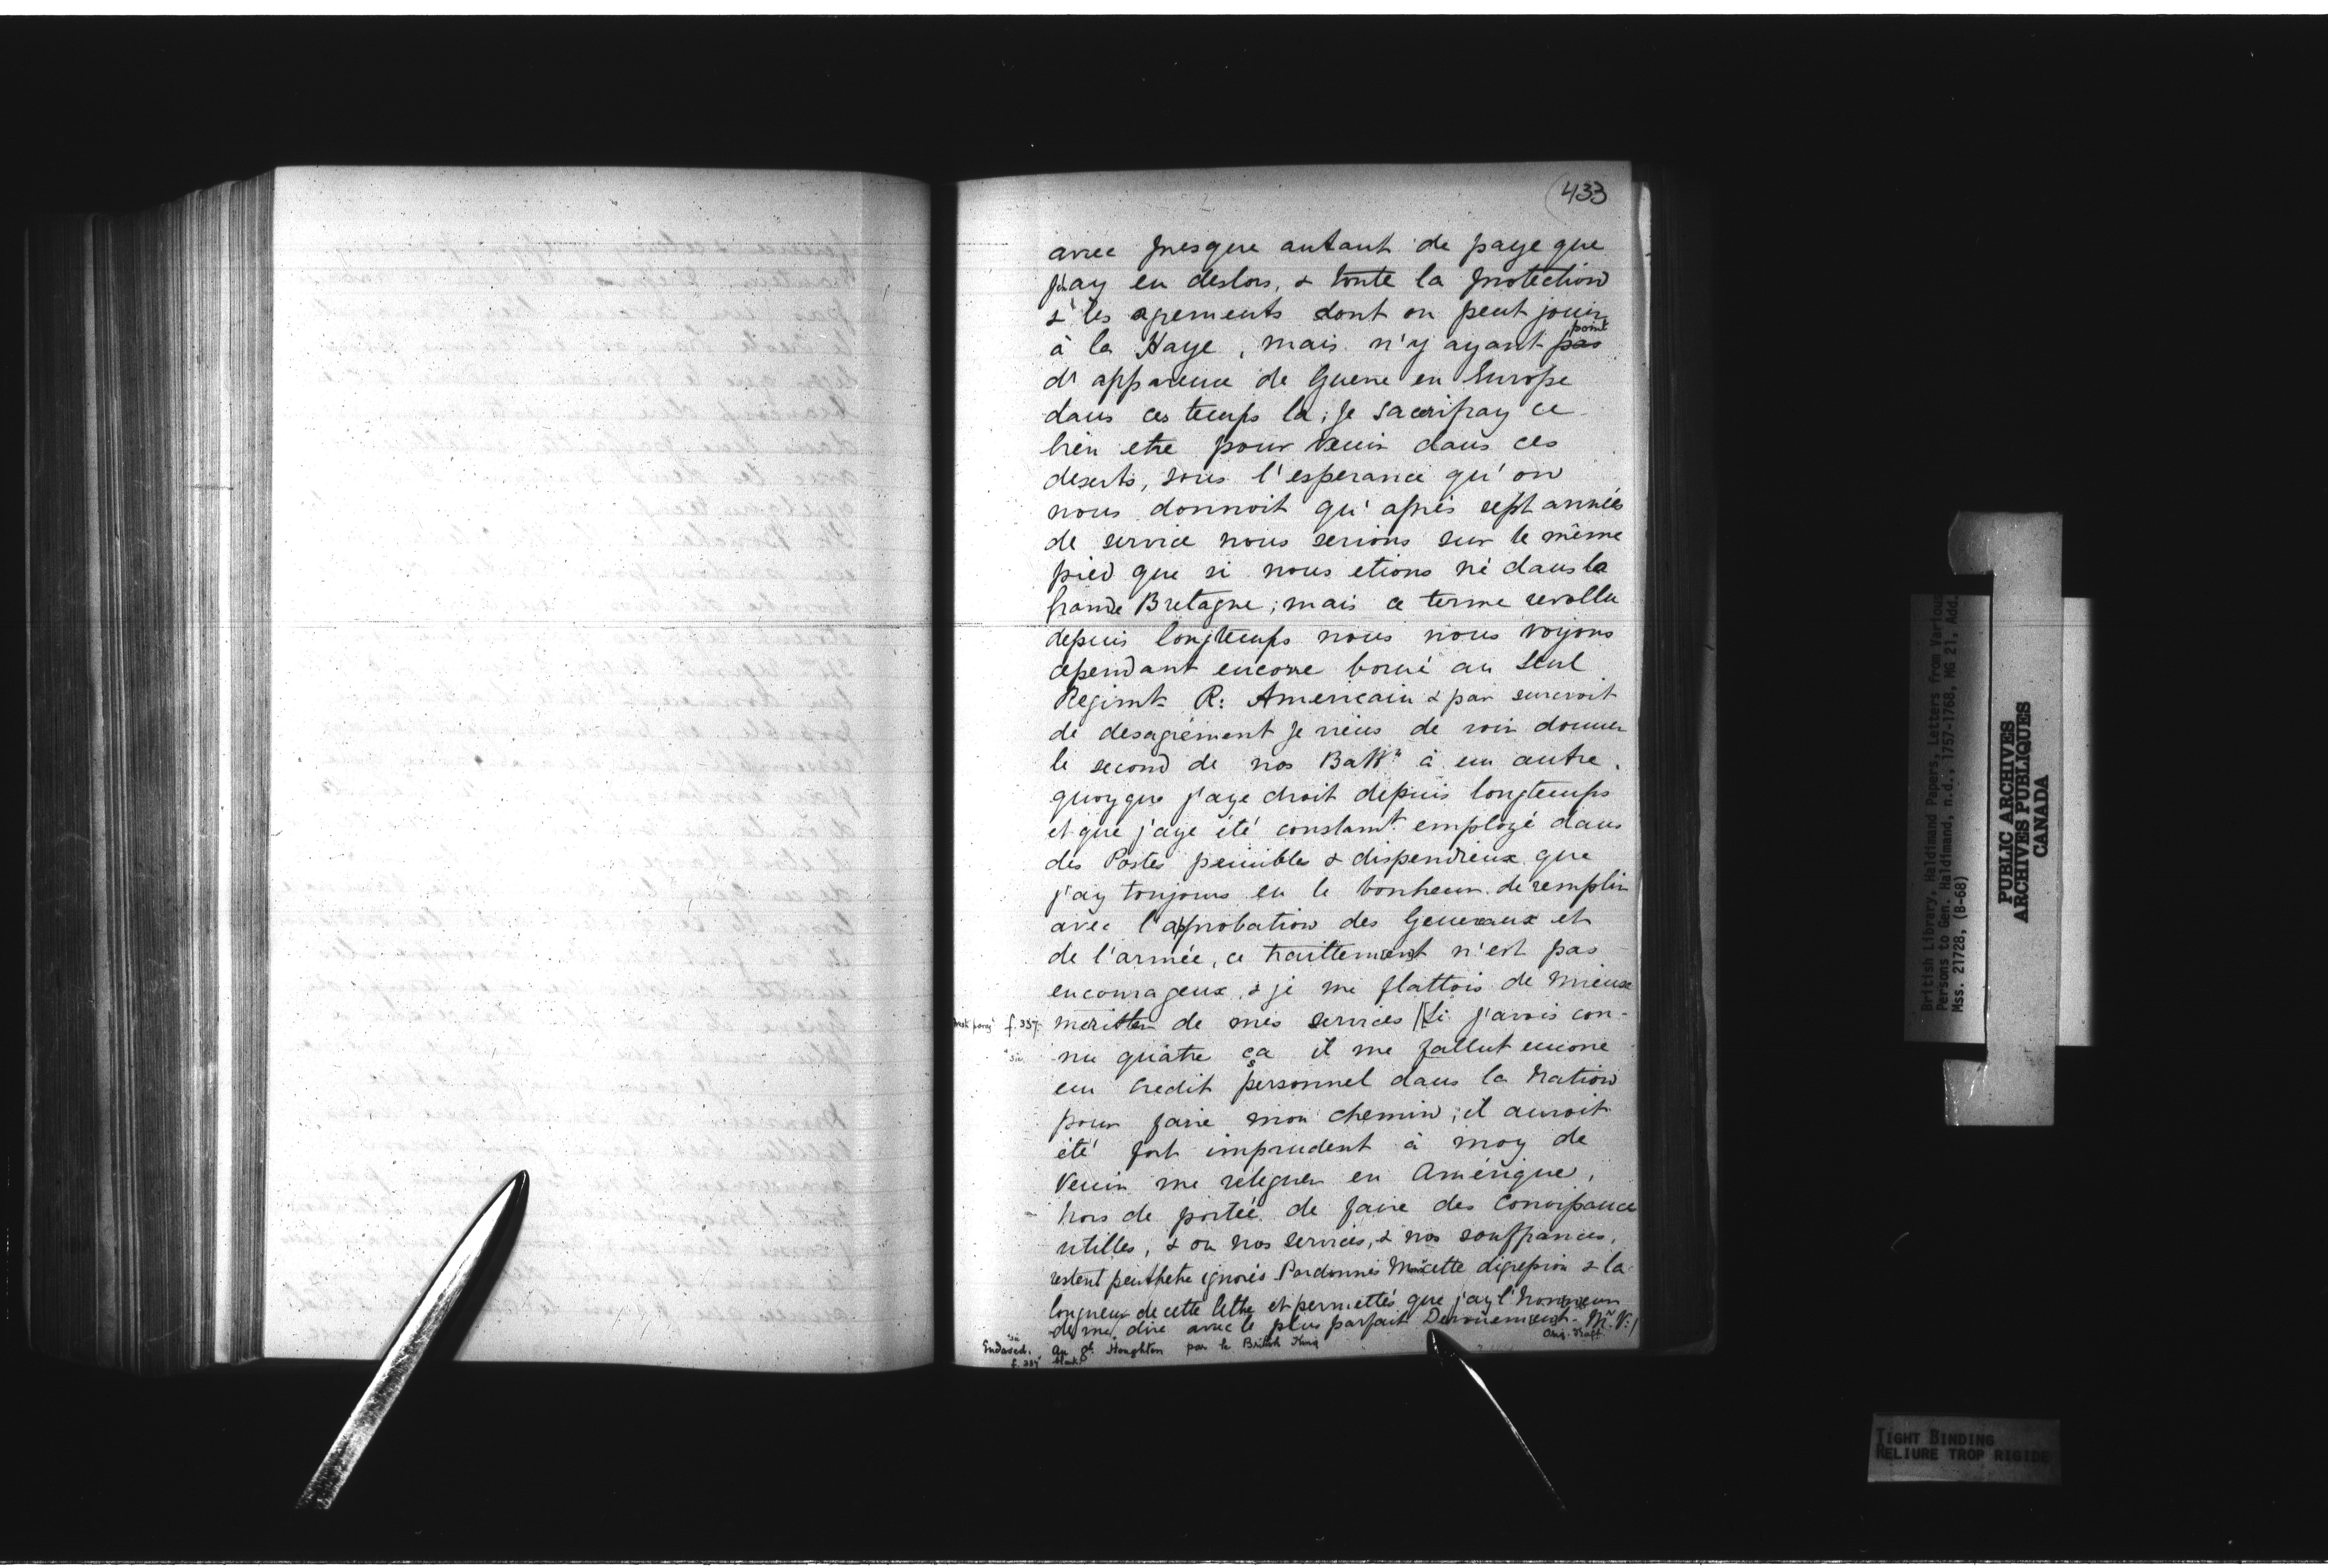 433
avec presque autant de paye que
j'ay eu deslors, & toute la protection
& les agrements dont on peut jouir
à la Haye, mais n'y ayant pas point
d' apparence de Guerre en Europe
dans ces temps la; Je sacrifray ce
bien etre pour venir dans ces
deserts, sous l'esperance qu'on
nous donnoit qu'après sept années
de service nous serions sur le même
pied que si nous etions né dans la
Grande Bretagne; mais ce terme revollu
depuis longtemps nous nous voyons
cependant encore borné au seul
Regimt R: Americain & par surcroit
de desagrément Je viens de voir donner
le second de nos Battn à un autre.
quoyque j'aye droit depuis longtemps
et que j'aye été constamt employé dans
des Postes penibles & dispendieux que
j'ay toujours eu le bonheur de remplir
avec l'approbation des Generaux et
de l'armée, ce traittement n'est pas
encourageux, & je me flattois de mieux
f. 337 meritter de mes services // Si j'avois con-
"sic. nu quatre ça il me fallut encore
un credit personnel dans la Nation
pour faire mon chemin; il auroit
été fort imprudent à moy de
Venir me releguer en Amérique,
hors de portée de faire des Connoissance
utilles, & ou nos services, & nos souffrances,
restent peuthetre ignorés Pardonnés cette digression & la
longueur de cette lettre et permettés que j'ay l'honneur
de me dire avec le plus parfait Devouement. Mr. V:/
Endorsed. au gl Haughton par le British King
f. 337
British Library, Haldimand Papers, Letters from Various
Persons to Gen. Haldimand, n.d., 1757-1768, MG 21, Add.
Mss. 21728, (B-68)
PUBLIC ARCHIVES
ARCHIVES PUBLIQUES
CANADA
TIGHT BINDING
RELIURE TROP RIGIDE